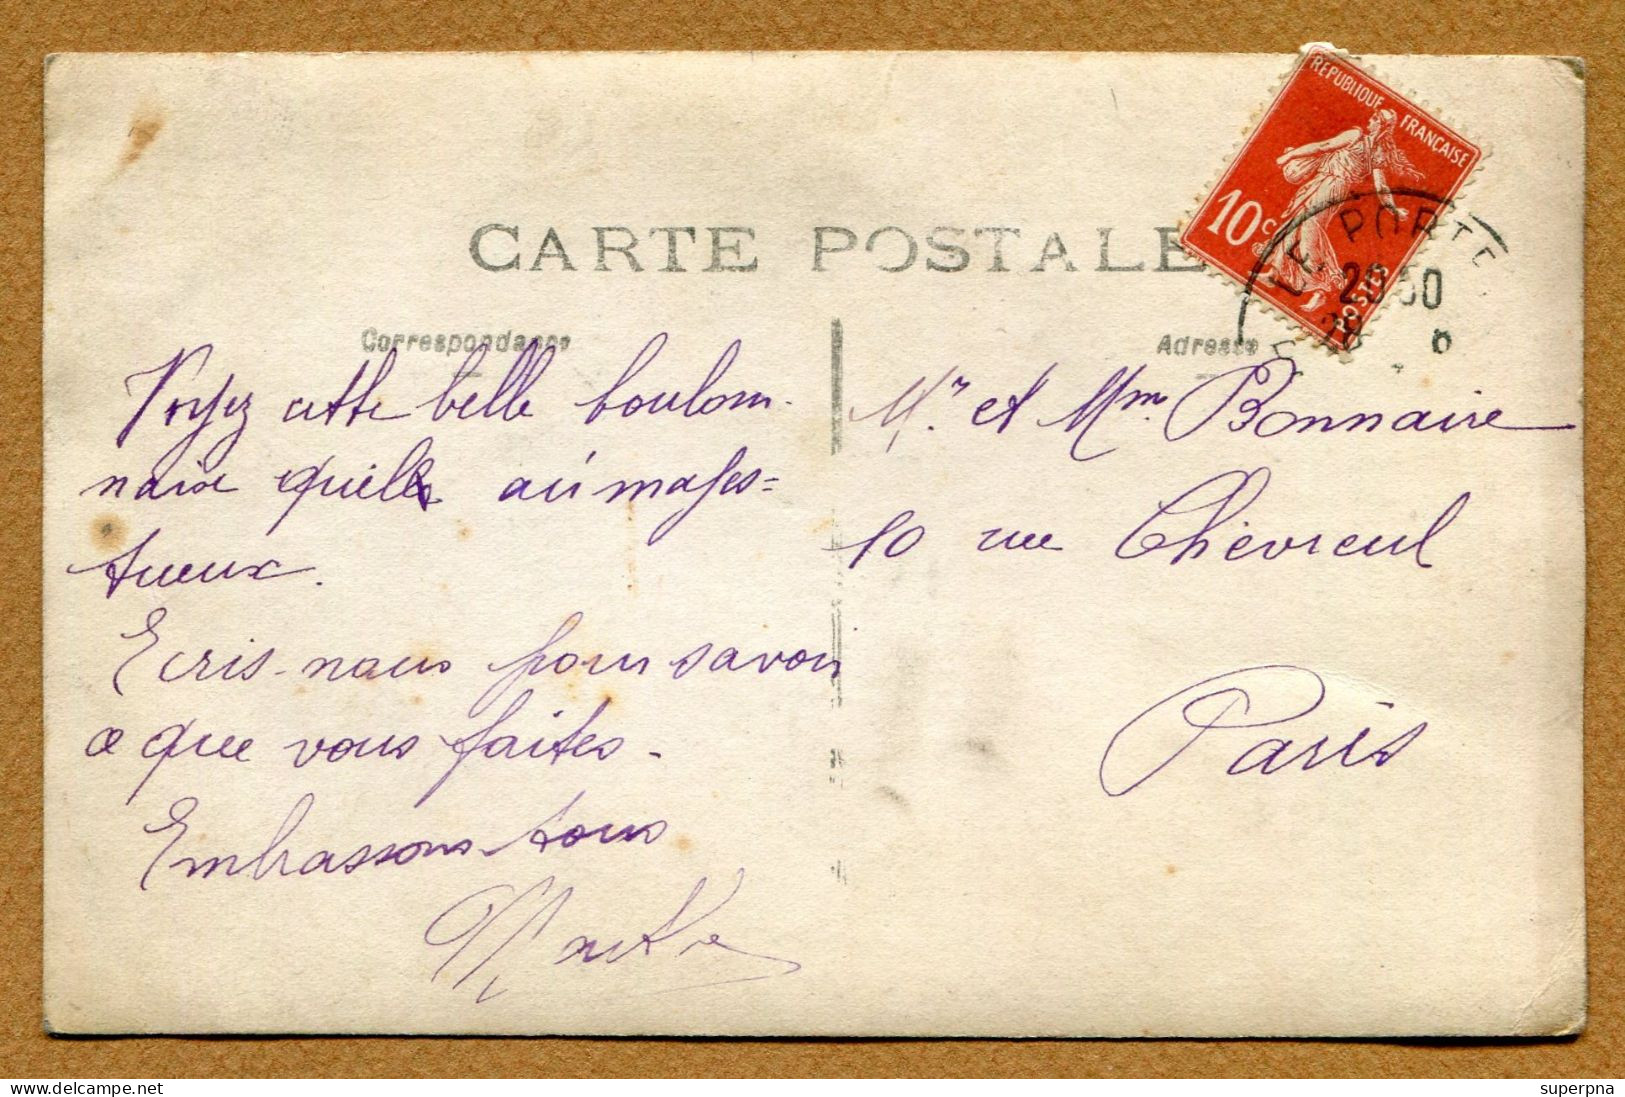 CARTE POSTALE
REPUBLIQUE FRANÇAISE
10c
POSTES
LE PORTE
Correspondance
Voyez cette belle boulon-
naise quelle air majes=
tueux.
Ecris-nous pour savoir
ce que vous faites.
Embrassons tous
Marthe
Adresse
Mr et Mme Bonnaire
10 rue Chevreul
Paris
superpna